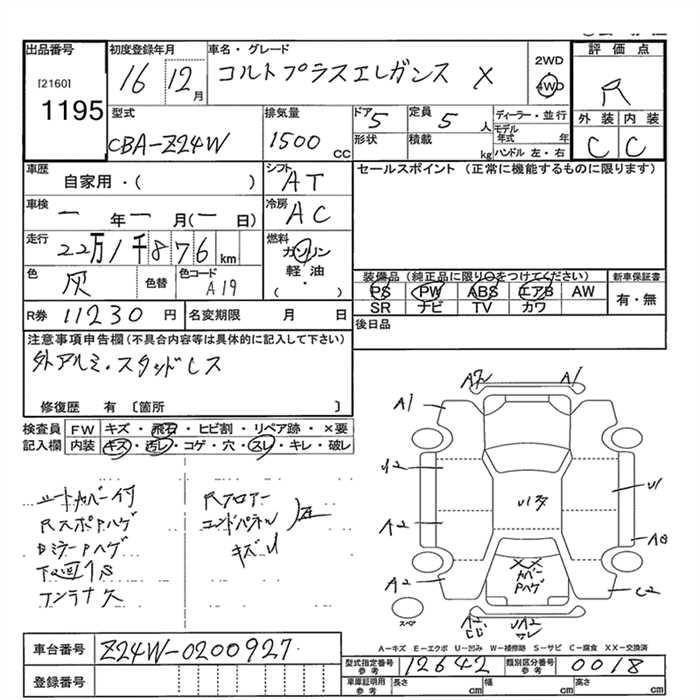 出品番号 初度登録年月 車名・グレード 2WD 評価点
[2160] 1195 16 12月 コルトプラスエレガンス X 4WD R
型式 排気量 ドア 定員 ディーラー・並行 外装 内装
CBA-Z24W 1500cc 5 5人 モデル年式 年 C C
形状 積載 kg ハンドル 左・右
車歴 シフト セールスポイント (正常に機能するものに限ります)
自家用・( ) AT
車検 冷房
一年一月(一日) AC
走行 燃料
22万1千876km ガソリン
色 色替 色コード 軽油・
灰 A19 ( )
装備品(純正品に限り○をつけてください) 新車保証書
PS PW ABS エアB AW 有・無
SR ナビ TV カワ
R券 11230円 名変期限 月 日 後日品
注意事項申告欄(不具合内容等は具体的に記入して下さい)
外アルミ・スタッドレス
修復歴 有 〔箇所 〕
検査員 FW キズ・飛石・ヒビ割・リペア跡・×要
記入欄 内装 キズ・汚レ・コゲ・穴・スレ・キレ・破レ
シートカバー付 Rフロアー
RスポPハゲ エンドパネル
DミラーPハゲ キズU
下廻りS
アンテナ欠
A1 A1
U2 U1
A2
A2 C2
XX
カバー
Pハゲ
スペア
A-キズ E-エクボ U-凹み W-補修跡 S-サビ C-腐食 XX-交換済
車台番号 Z24W-0200927
型式指定番号 参考 12642 類別区分番号 参考 0018
登録番号 車庫証明用 参考 長さ cm 幅 cm 高さ cm